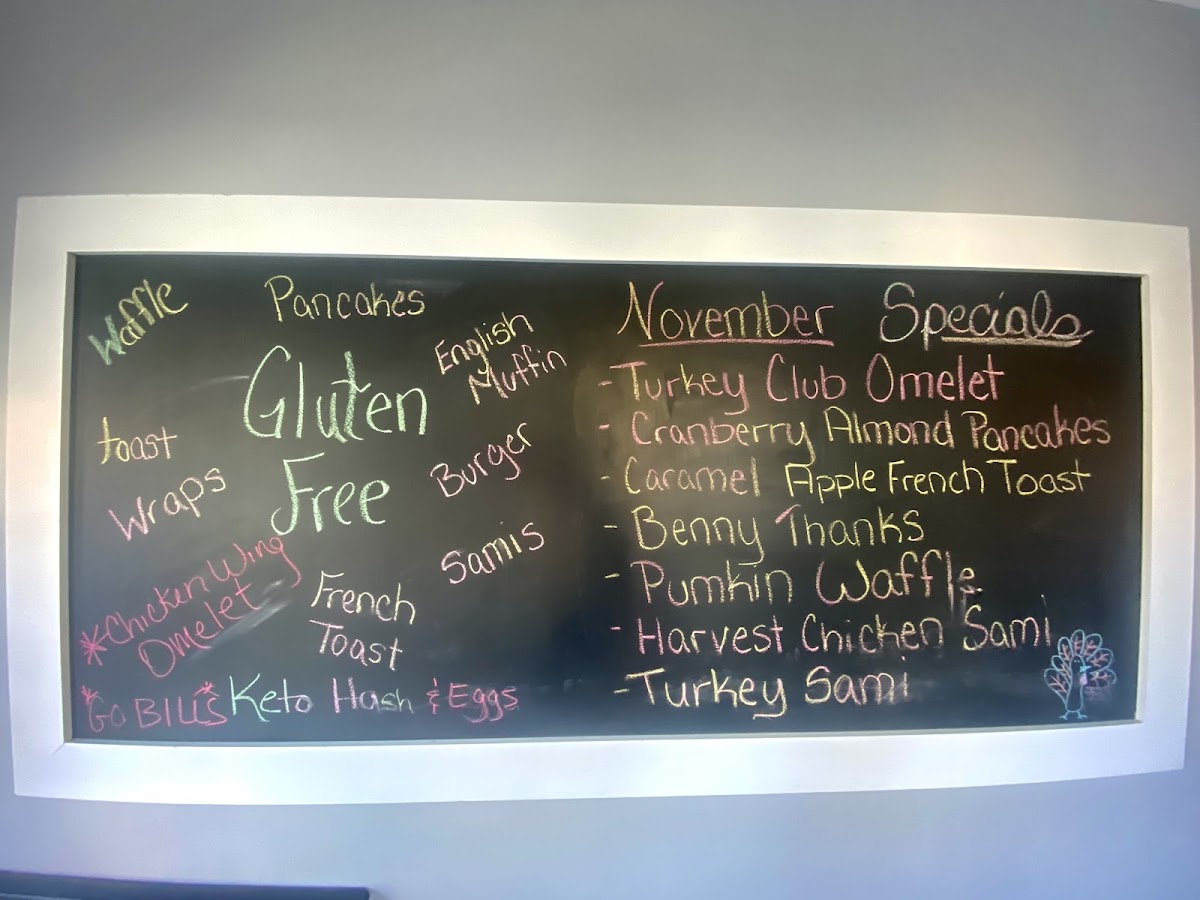 Waffle
Pancakes
English
Muffin
Gluten
Free
toast
Wraps
Burger
Samis
*Chicken Wing
Omelet
French
Toast
*Go BILLS*
Keto Hash & Eggs
November Specials
- Turkey Club Omelet
- Cranberry Almond Pancakes
- Caramel Apple French Toast
- Benny Thanks
- Pumkin Waffle
- Harvest Chicken Sami
- Turkey Sami